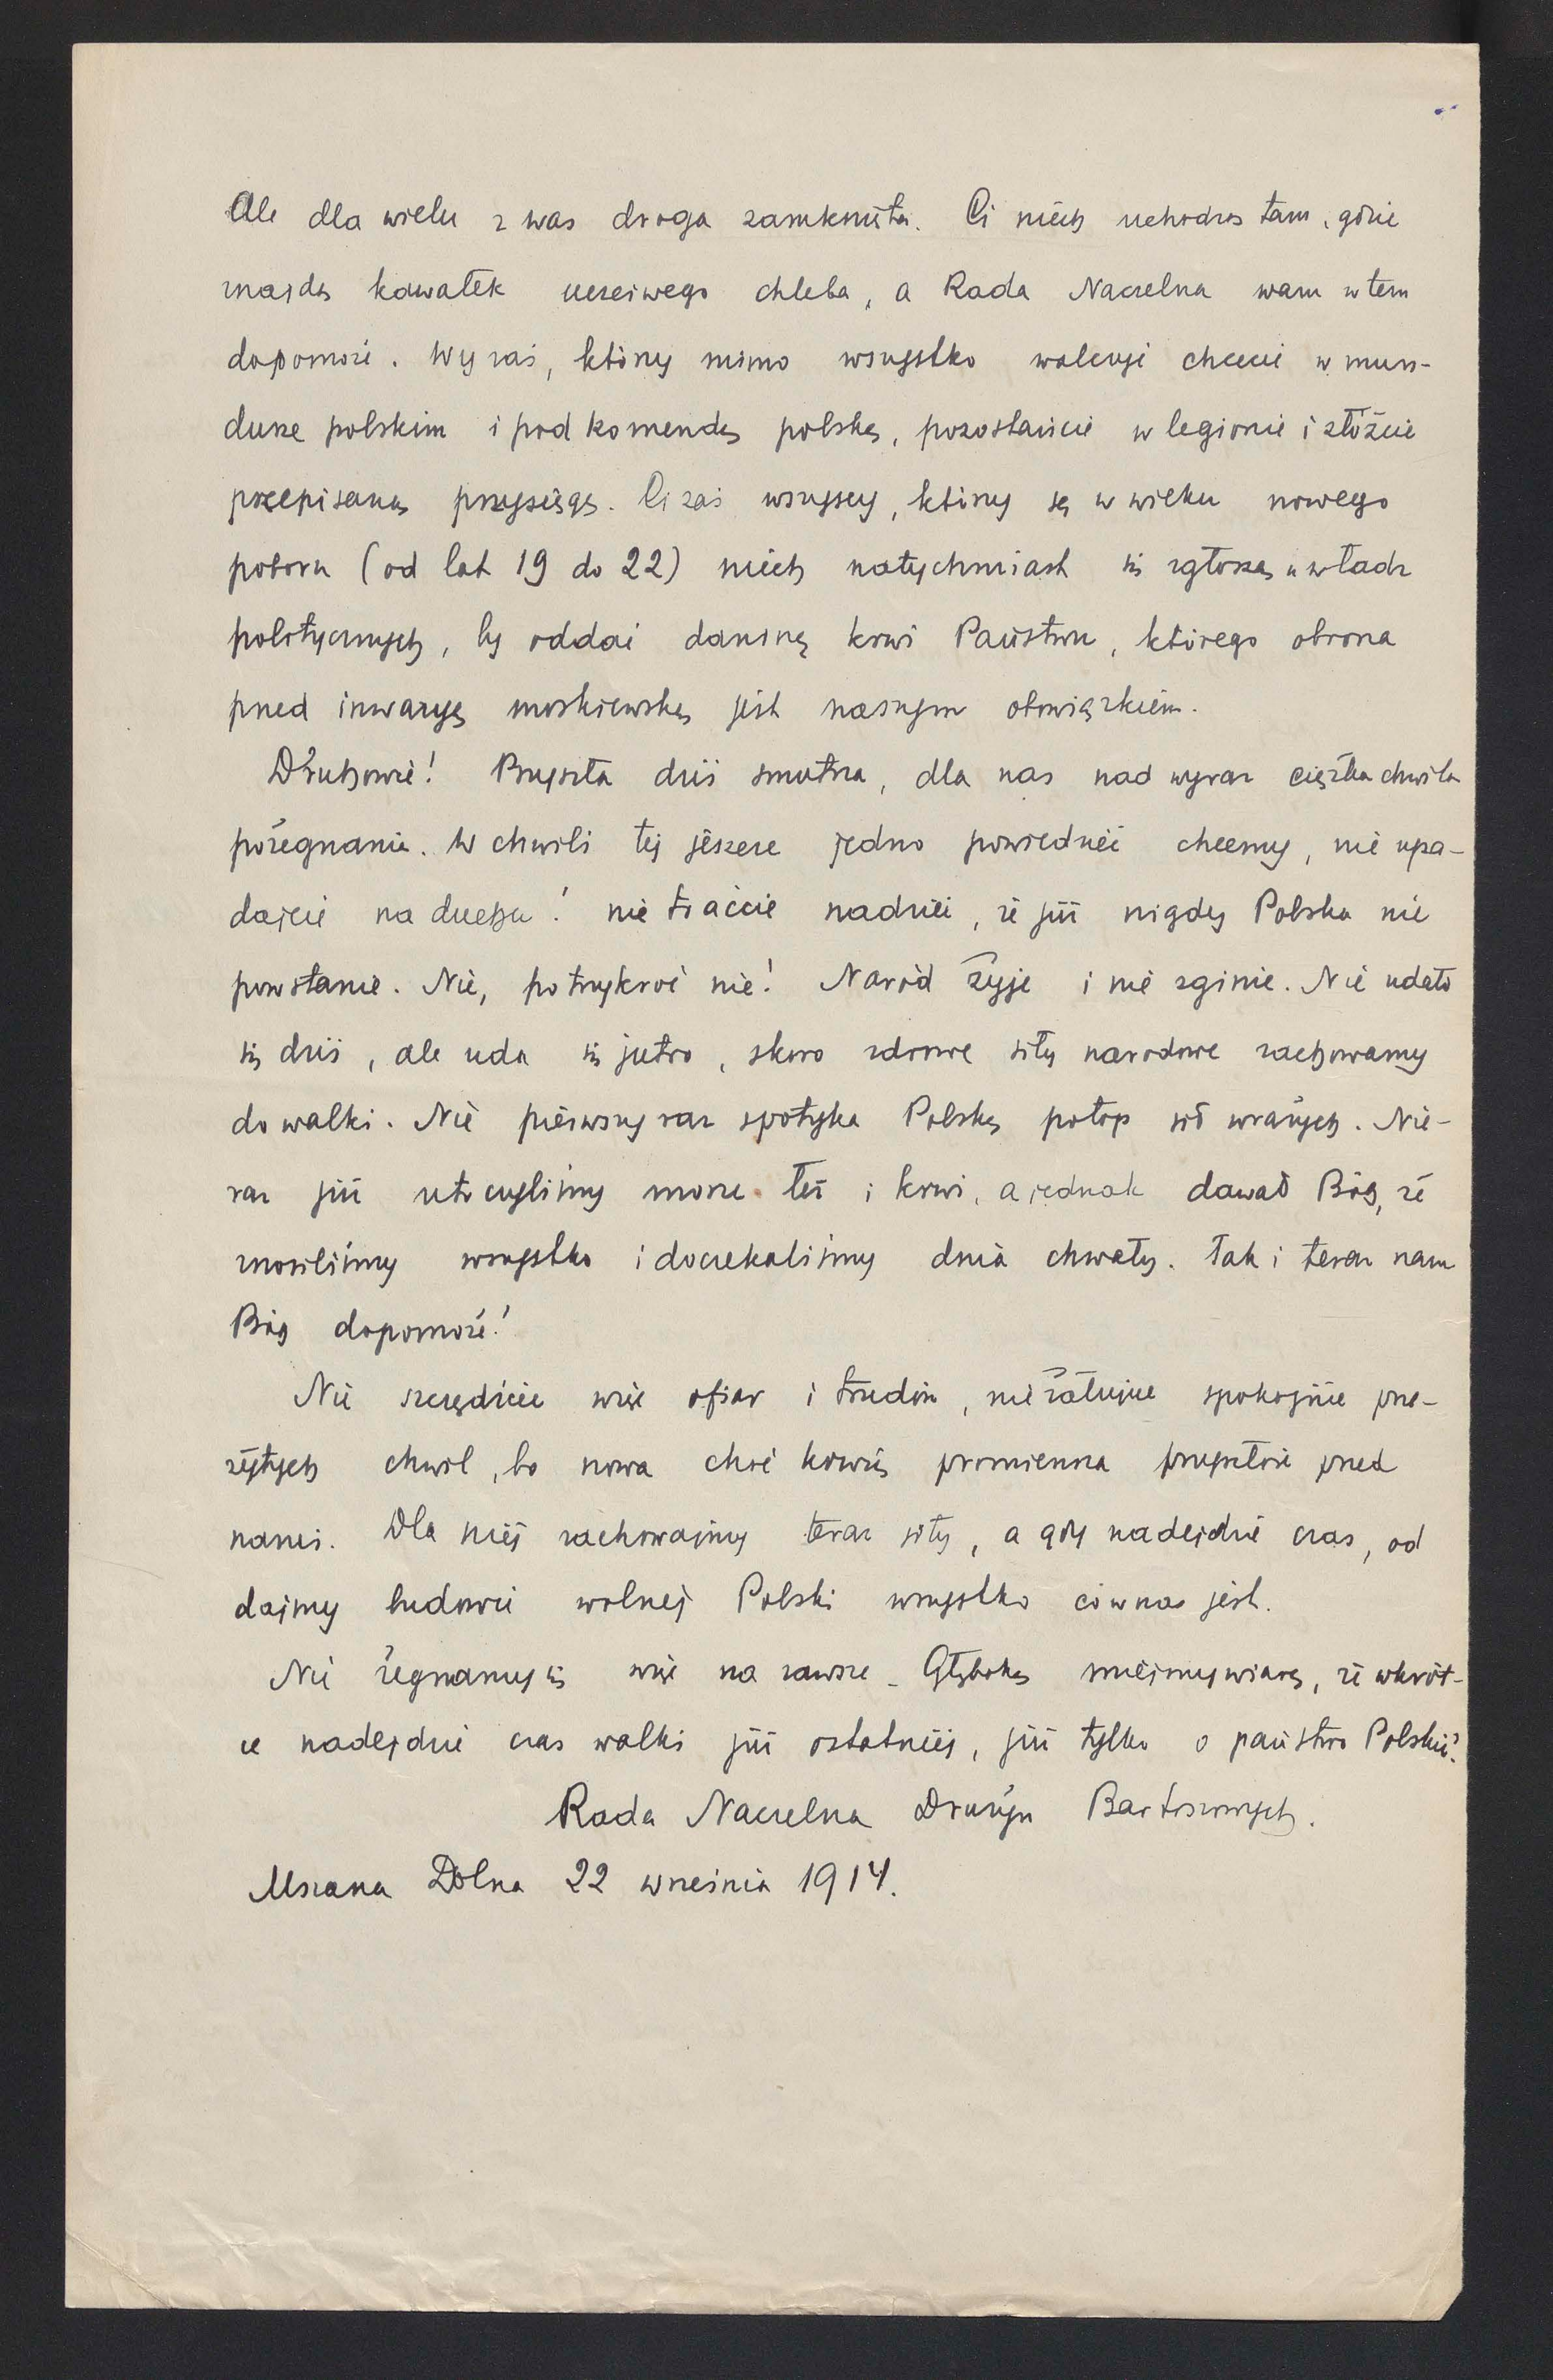 Ale dla wielu z was droga zamknięta. Ci niech uchodzą tam, gdzie
znajdą kawałek uczciwego chleba, a Rada Naczelna wam w tem
dopomoże. Wy zaś, którzy mimo wszystko walczyć chcecie w mun-
durze polskim i pod komendą polską, pozostańcie w legionie i złóżcie
przepisaną przysięgę. Ci zaś wszyscy, którzy są w wieku nowego
poboru (od lat 19 do 22) niech natychmiast się zgłoszą u władz
politycznych, by oddać daninę krwi Państwu, którego obrona
przed inwazyą moskiewską jest naszym obowiązkiem.
Druhowie! Przyszła dziś smutna, dla nas nad wyraz ciężka chwila
pożegnania. W chwili tej jeszcze jedno powiedzieć chcemy, nie upa-
dajcie na duchu! nie traćcie nadziei, że już nigdy Polska nie
powstanie. Nie, po trzykroć nie! Naród żyje i nie zginie. Nie udało
się dziś, ale uda się jutro, skoro zdrowe siły narodowe zachowamy
do walki. Nie pierwszy raz spotyka Polskę potop sił wrażych. Nie-
raz już utoczyliśmy morze łez i krwi, a jednak dawał Bóg, że
znosiliśmy wszystko i doczekaliśmy dnia chwały. Tak i teraz nam
Bóg dopomoże!
Nie szczędźcie więc ofiar i trudów, nie żałujcie spokojnie prze-
żytych chwil, bo nowa choć krwią promienna przyszłość przed
nami. Dla niej zachowajmy teraz siły, a gdy nadejdzie czas, od
dajmy ludowi wolnej Polski wszystko co w nas jest.
Nie żegnamy się więc na zawsze. Głęboką miejmy wiarę, że wkrót-
ce nadejdzie czas walki już ostatniej, już tylko o państwo Polskie!
Rada Naczelna Drużyn Bartoszowych.
Mszana Dolna 22 września 1914.